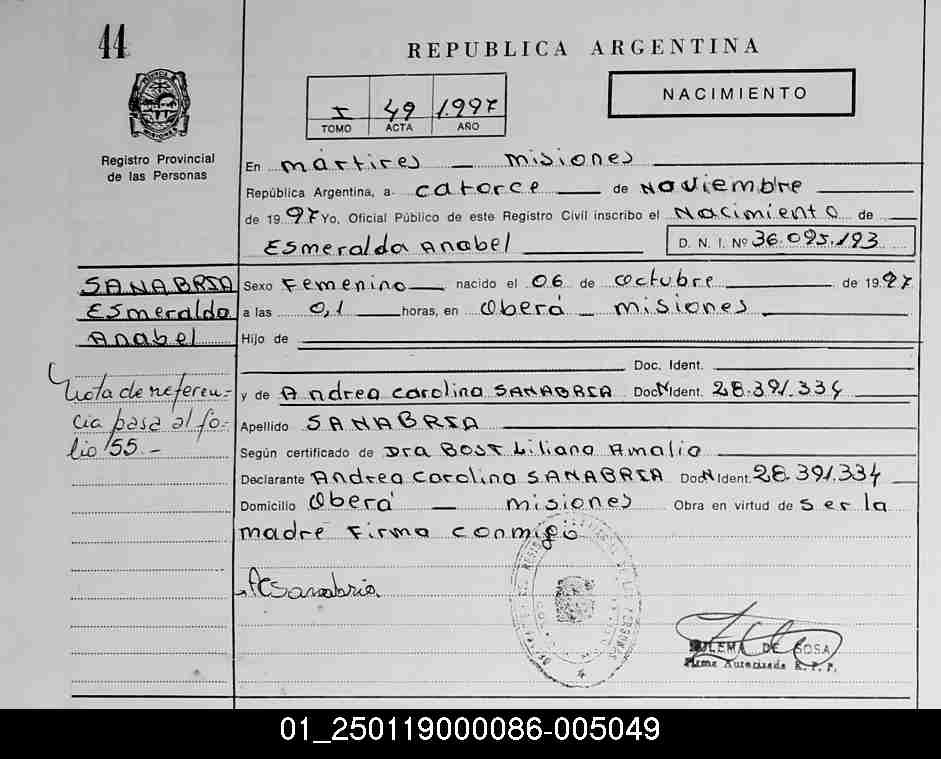 44
REPUBLICA ARGENTINA
I 49 1.997
TOMO ACTA AÑO
NACIMIENTO
Registro Provincial
de las Personas
En mártires — misiones
República Argentina, a catorce de Noviembre
de 1997 Yo, Oficial Público de este Registro Civil inscribo el Nacimiento de
Esmeralda Anabel D. N. I. Nº 36.095.193
SANABRIA
Esmeralda
Anabel
Nota de referen-
cia pasa al fo-
lio 155.-
Sexo Femenino nacido el 06 de octubre de 1997
a las 0,1 horas, en Oberá — misiones
Hijo de
Doc. Ident.
y de Andrea Carolina SANABRIA Doc. Ident. 28.391.334
Apellido SANABRIA
Según certificado de Dra Bost Liliana Amalia
Declarante Andrea Carolina SANABRIA Doc. Ident. 28.391.334
Domicilio Oberá — misiones Obra en virtud de ser la
madre Firma conmigo
ACSanabria
ZULEMA DE SOSA
Firma Autorizada R. P. P.
01_250119000086-005049